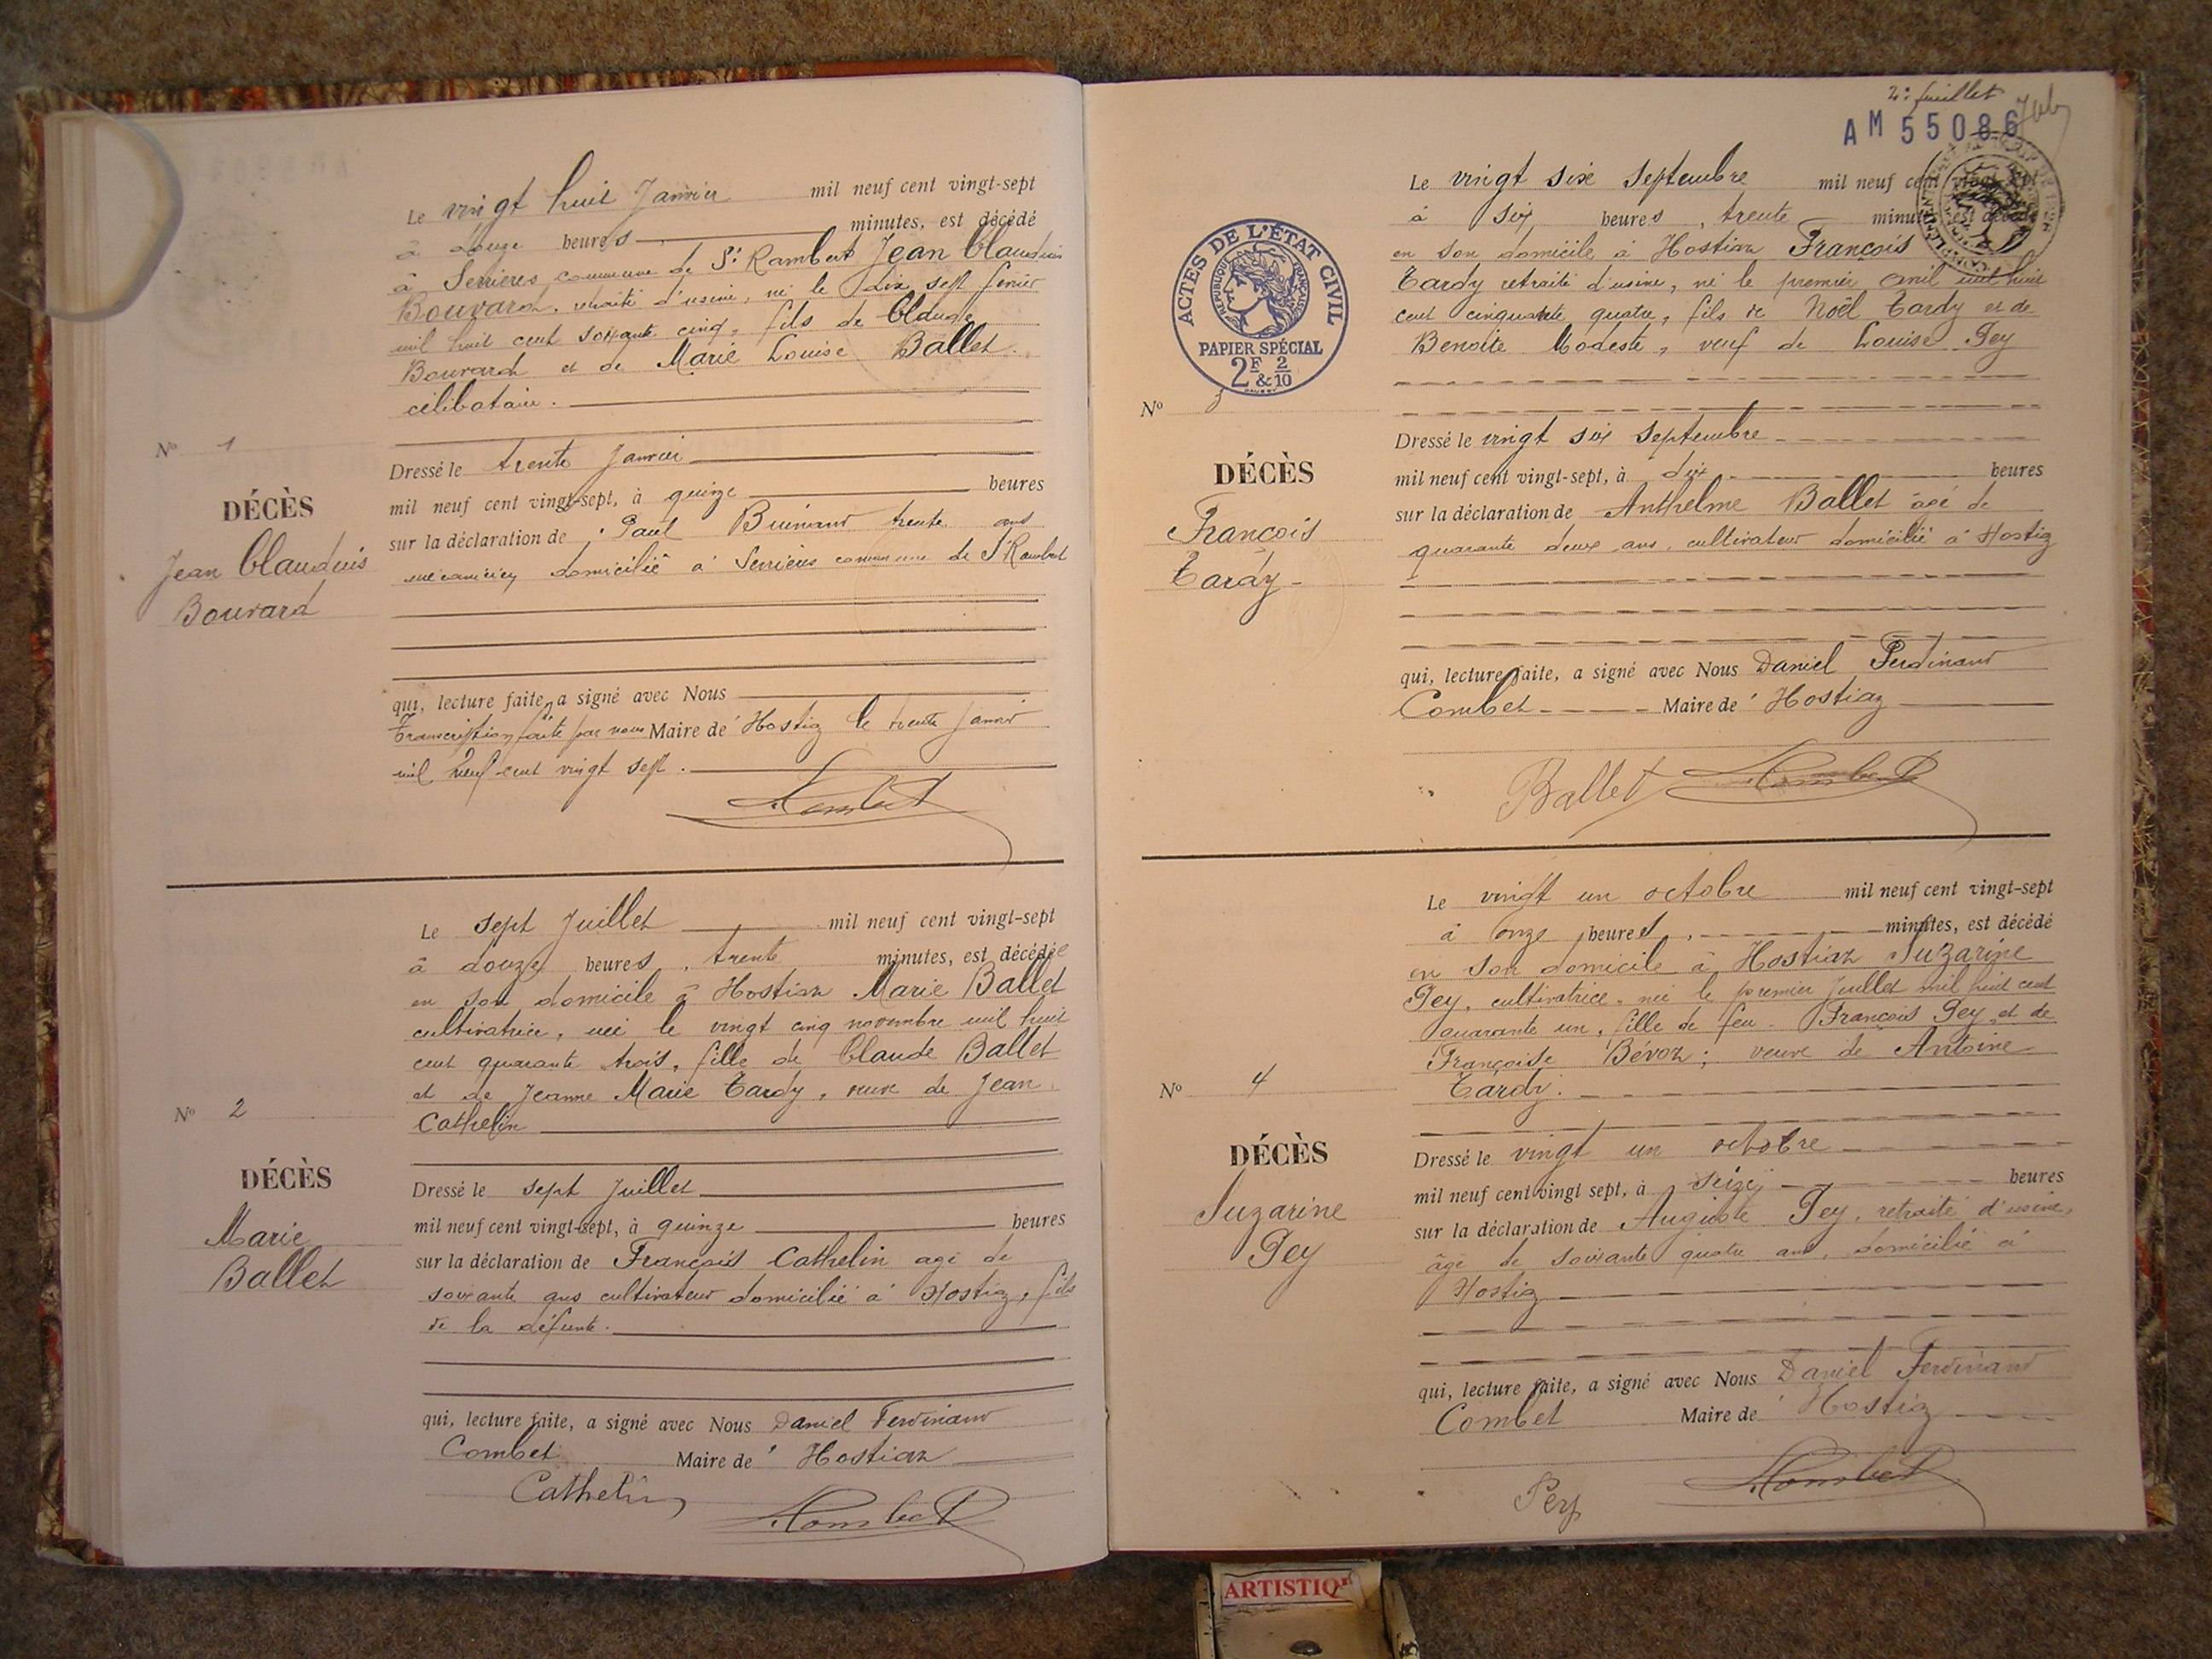 Le vingt huit Janvier mil neuf cent vingt-sept
à douze heures minutes, est décédé
à Serrières commune de St Rambert Jean Claudius
Bouvard, retraité d'usine, né le dix sept février
mil huit cent soixante cinq, fils de Claude
Bouvard et de Marie Louise Ballet
célibataire.
No 1
DÉCÈS
Jean Claudius
Bouvard
Dressé le trente Janvier
mil neuf cent vingt-sept, à quinze heures
sur la déclaration de Paul trente ans
mécanicien domicilié à Serrières commune de St Rambert
qui, lecture faite, a signé avec Nous
Transcription faite par nous Maire de Hostiaz le trente Janvier
mil neuf cent vingt sept.
Combet
Le sept Juillet mil neuf cent vingt-sept
à douze heures, trente minutes, est décédée
en son domicile à Hostiaz Marie Ballet
cultivatrice, née le vingt cinq novembre mil huit
cent quarante trois, fille de Claude Ballet
et de Jeanne Marie Tardy, veuve de Jean
Cathelin
No 2
DÉCÈS
Marie
Ballet
Dressé le sept Juillet
mil neuf cent vingt-sept, à quinze heures
sur la déclaration de François Cathelin agé de
soixante ans cultivateur domicilié à Hostiaz, fils
de la défunte.
qui, lecture faite, a signé avec Nous Daniel Ferdinand
Combet Maire de Hostiaz
Cathelin Combet
2e feuillet
AM 55086
ACTES DE L'ÉTAT CIVIL
RÉPUBLIQUE FRANÇAISE
PAPIER SPÉCIAL
2F 2/10
&
Le vingt six Septembre mil neuf cent vingt-sept
à six heures, trente minutes, est décédé
en son domicile à Hostiaz François
Tardy retraité d'usine, né le premier avril mil huit
cent cinquante quatre, fils de Noël Tardy et de
Benoite Modeste, veuf de Louise Pey
No 3
DÉCÈS
François
Tardy
Dressé le vingt six Septembre
mil neuf cent vingt-sept, à dix heures
sur la déclaration de Anthelme Ballet âgé de
quarante deux ans, cultivateur domicilié à Hostiaz
qui, lecture faite, a signé avec Nous Daniel Ferdinand
Combet Maire de Hostiaz
Ballet Combet
Le vingt un octobre mil neuf cent vingt-sept
à onze heures, minutes, est décédé
en son domicile à Hostiaz Suzarine
Pey, cultivatrice, née le premier Juillet mil huit cent
quarante un, fille de feu François Pey et de
Françoise Bévoz; veuve de Antoine
Tardy.
No 4
DÉCÈS
Suzarine
Pey
Dressé le vingt un octobre
mil neuf cent vingt sept, à seize heures
sur la déclaration de Auguste Pey, retraité d'usine,
âgé de soixante quatre ans, domicilié à
Hostiaz
qui, lecture faite, a signé avec Nous Daniel Ferdinand
Combet Maire de Hostiaz
Pey Combet
ARTISTIQ